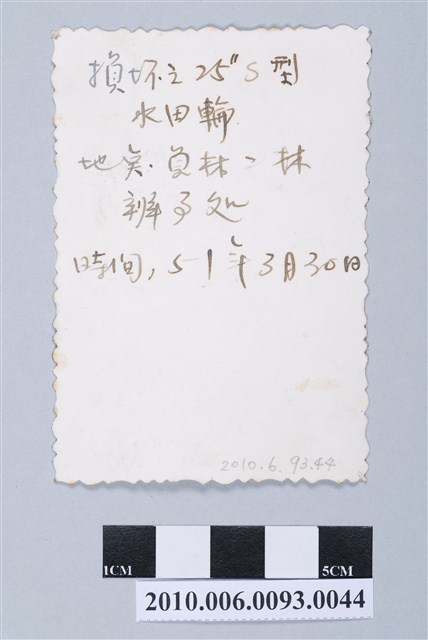 損坏之25"S型
水田輪
地矣.員林二林
辦事処
時间,51年3月30日
2010.6.93.44
1CM
5CM
2010.006.0093.0044